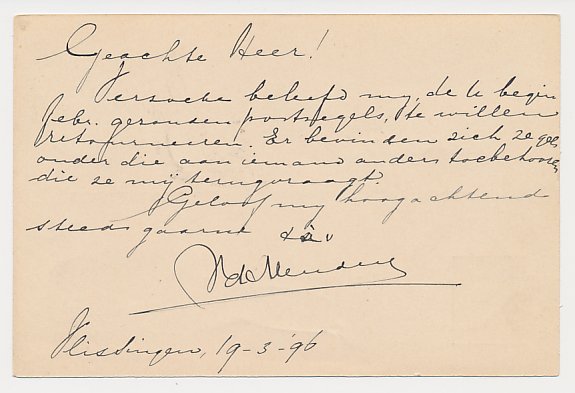 Geachte Heer!
Verzoeke beleefd mij, de U begin
Febr. gezonden postzegels, te willen
retourneeren. Er bevinden zich zegels
onder die aan iemand anders toebehooren,
die ze mij terugvraagt.
Geloof mij hoogachtend
steeds gaarne
Vlissingen, 19-3-'96